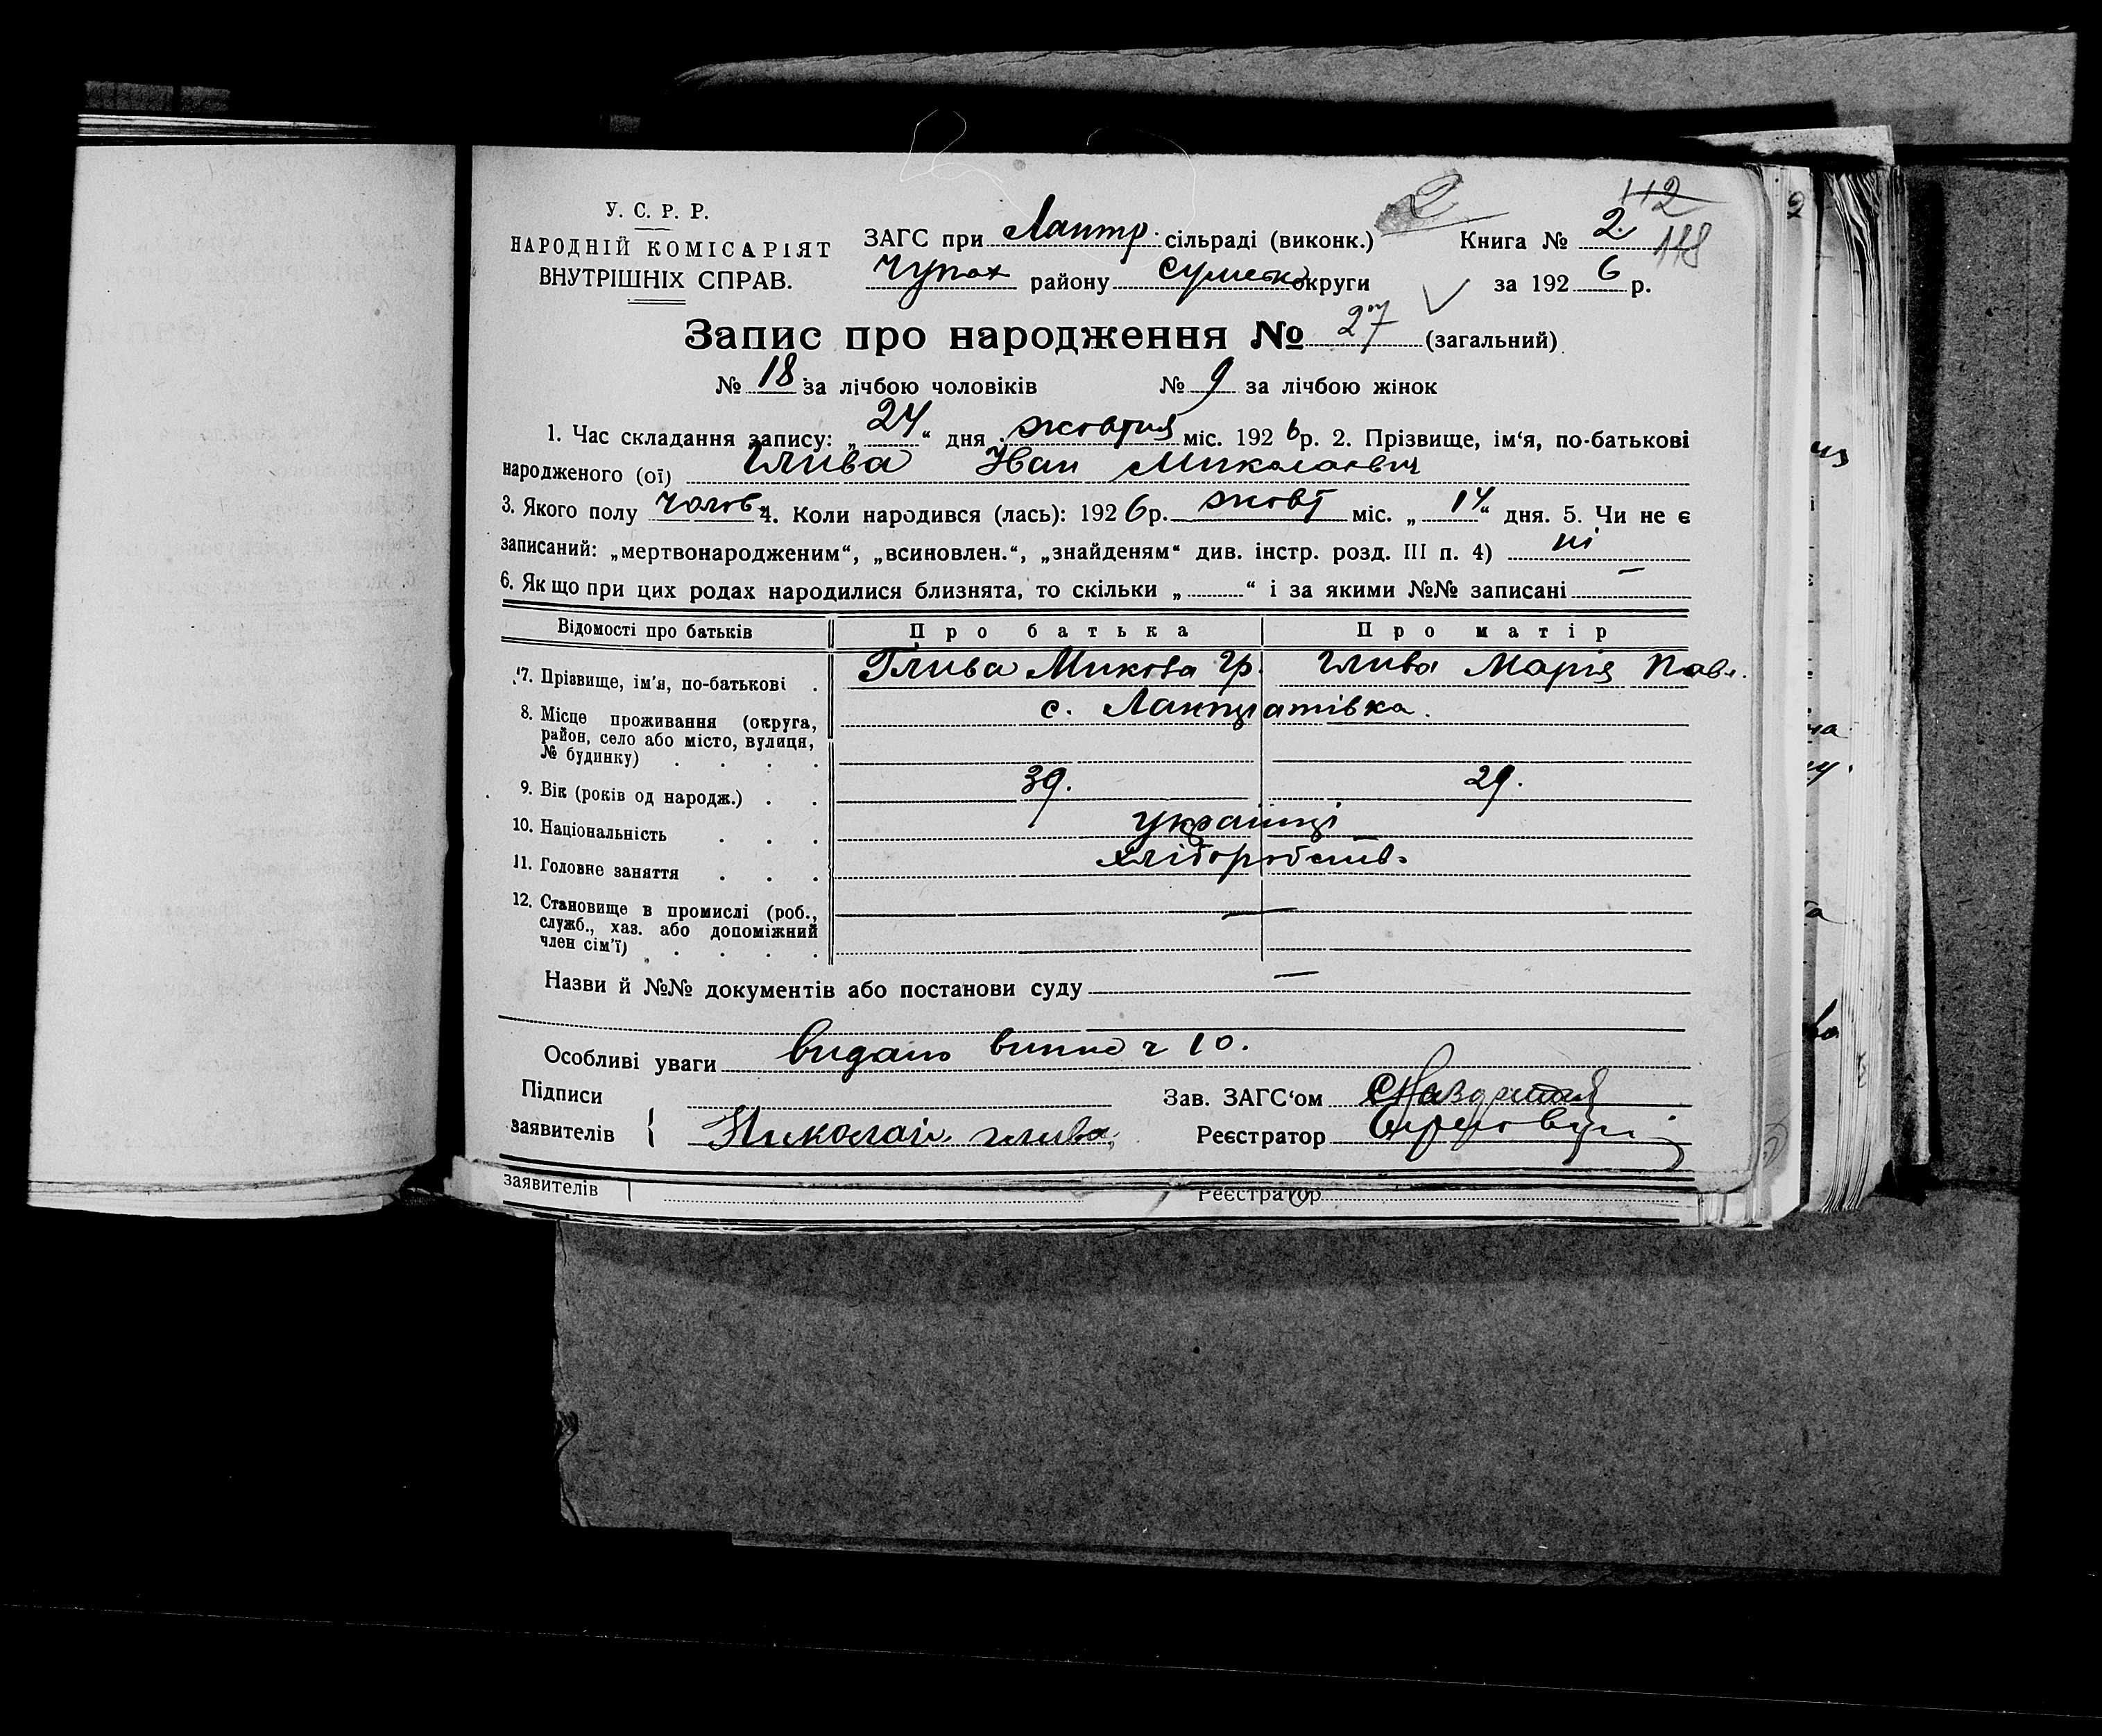 2
112
118
У. С. Р. Р.
НАРОДНІЙ КОМІСАРІЯТ
ВНУТРІШНІХ СПРАВ.
ЗАГС при Лантр. сільраді (виконк.)
Чупах району Сумськ округи
Книга № 2.
за 1926 р.
Запис про народження № 27 (загальний)
№ 18 за лічбою чоловіків № 9 за лічбою жінок
1. Час складання запису: „24“ дня жовтня міс. 1926 р. 2. Прізвище, ім‘я, по-батькові
народженого (ої) Глива Іван Миколаєвич
3. Якого полу чолов. 4. Коли народився (лась): 1926 р. жовт міс. „14“ дня. 5. Чи не є
записаний: „мертвонародженим“, „всиновлен.“, „знайденям“ див. інстр. розд. III п. 4) ні
6. Якщо при цих родах народилися близнята, то скільки „ “ і за якими №№ записані —
Відомості про батьків Про батька Про матір
7. Прізвище, ім'я, по-батькові . Глива Микола Гр. Глива Марія Павл.
8. Місце проживання (округа, район, село або місто, вулиця, № будинку) . . . .
с.
9. Вік (років од народж.) . . 39. 29.
10. Національність . . . українці
11. Головне заняття . . . хліборобств
12. Становище в промислі (роб., служб., хаз. або допоміжний член сім'ї) . . . . —
Назви й №№ документів або постанови суду —
Особливі уваги видано випис ч 10.
Підписи
заявителів { Николай Глива
Зав. ЗАГС‘ом
Реєстратор
заявителів Реєстратор